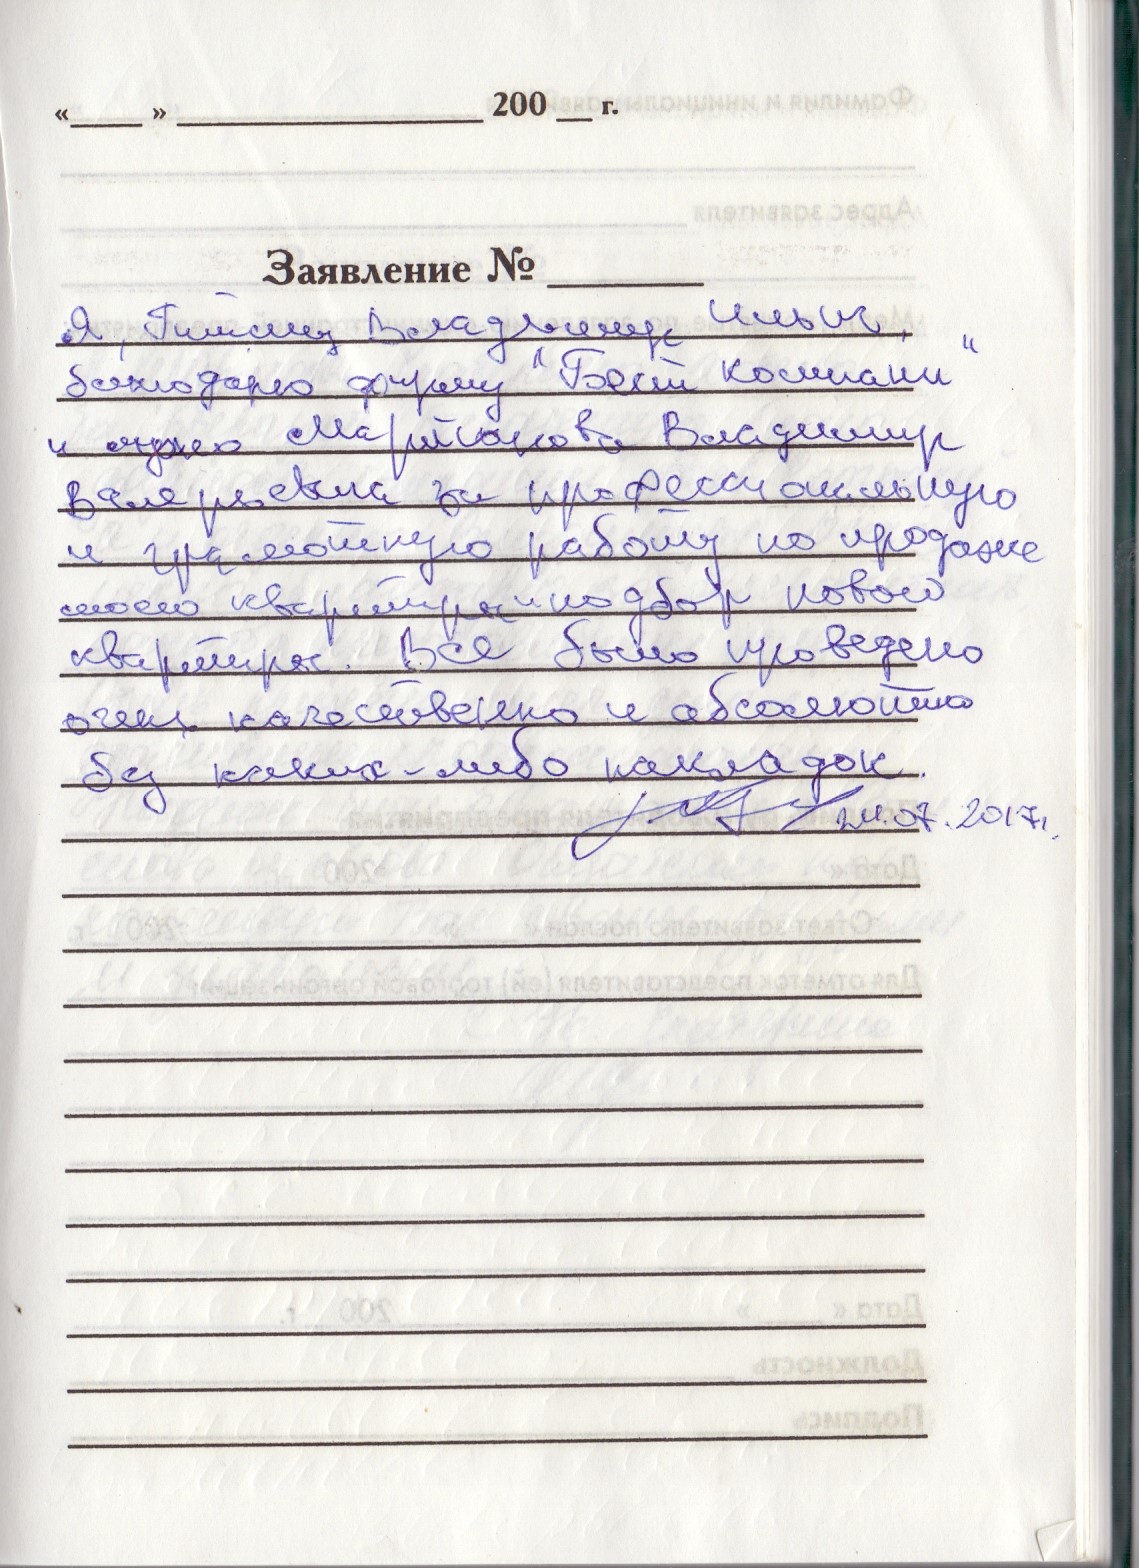 «____ » __________________ 200 __ г.
Заявление № ________
Я, Владимир Ильич,
благодарю фирму "Бест Компани"
и лично Мартынова Владимир
Валерьевича за профессиональную
и грамотную работу по продаже
моей квартиры и подбор новой
квартиры. Всё было проведено
очень качественно и абсолютно
без каких-либо накладок.
24.07.2017г.